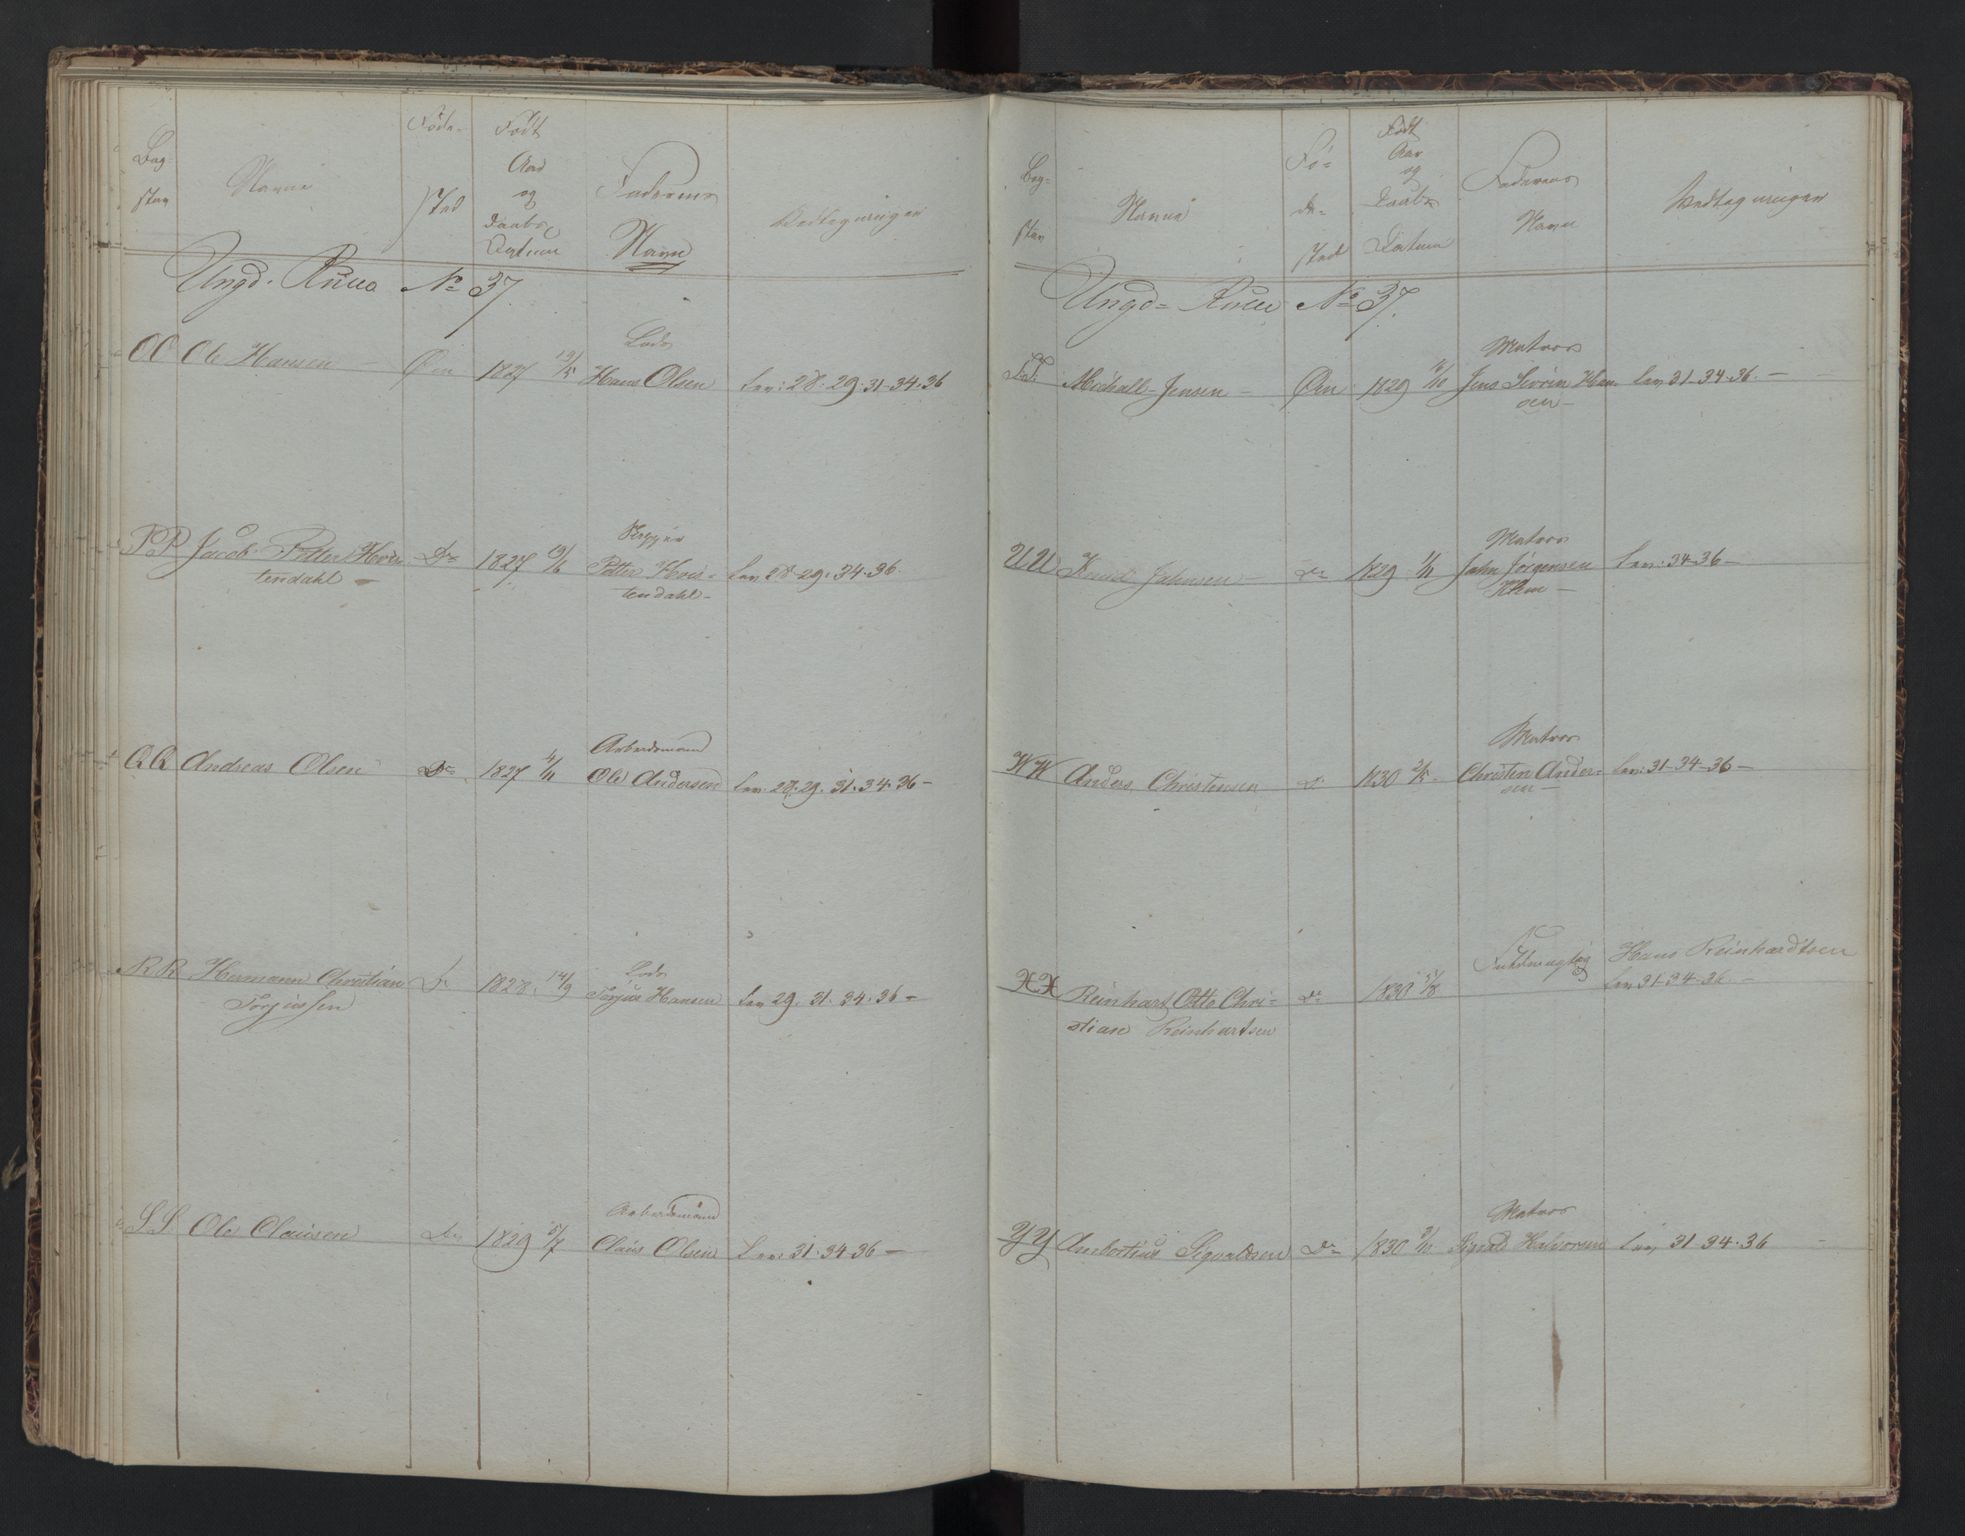 Bog-
stav
Navne
Føde-
sted
Født
Aar
og
Daabs
Datum
Faderens
Navn
Vedtegninger
Ungd. Rulle No 37
OO Ole Hansen Øen 1827 19/5
Lods
Hans Olsen
Lev: 28. 29. 31. 34. 36
PP Jacob Petter Hvis-
tendahl -
Do 1827 19/6
Skipper
Petter Hvis-
tendahl -
Lev 28. 29. 34. 36.
QQ Andreas Olsen Do 1827 4/11
Arbeidsmand
Ole Andersen
Lev. 28. 29. 31. 34. 36 -
RR Hermann Christian
Torjussen
Do 1828. 14/9
Lods
Torjus Hansen
Lev 29. 31. 34. 36 -
SS Ole Clausen Do 1829 5/7
Arbeidsmand
Claus Olsen
Lev: 31. 34. 36 -
Bog-
stav
Navne
Fø-
de-
sted
Født
Aar
og
Daabs
Datum
Faderens
Navn
Vedtegninger
Ungd- Rulle No 37.
TT. Michall Jensen - Øen 1829 /10
Matros
Jens Sivrin Han-
sen -
Lev 31-34-36. -
UU Knud Jahnsen - Do 1829 1/11
Matros
Jahn Jørgensen
Lev: 34-36 -
WW Anders Christensen Do 1830 2/5 -
Matros
Christen Ander-
sen -
Lev: 31-34-36 -
XX Reinhart Otto Chri-
stian Reinhartsen
Do 1830 /8
Fuldmægtig
Hans Reinhardtsen
Lev 31-34-36. -
YY Ambortius Sigvaldsen Do 1830 /11
Matros
Sigvald Halvorsen
Lev 31-34-36